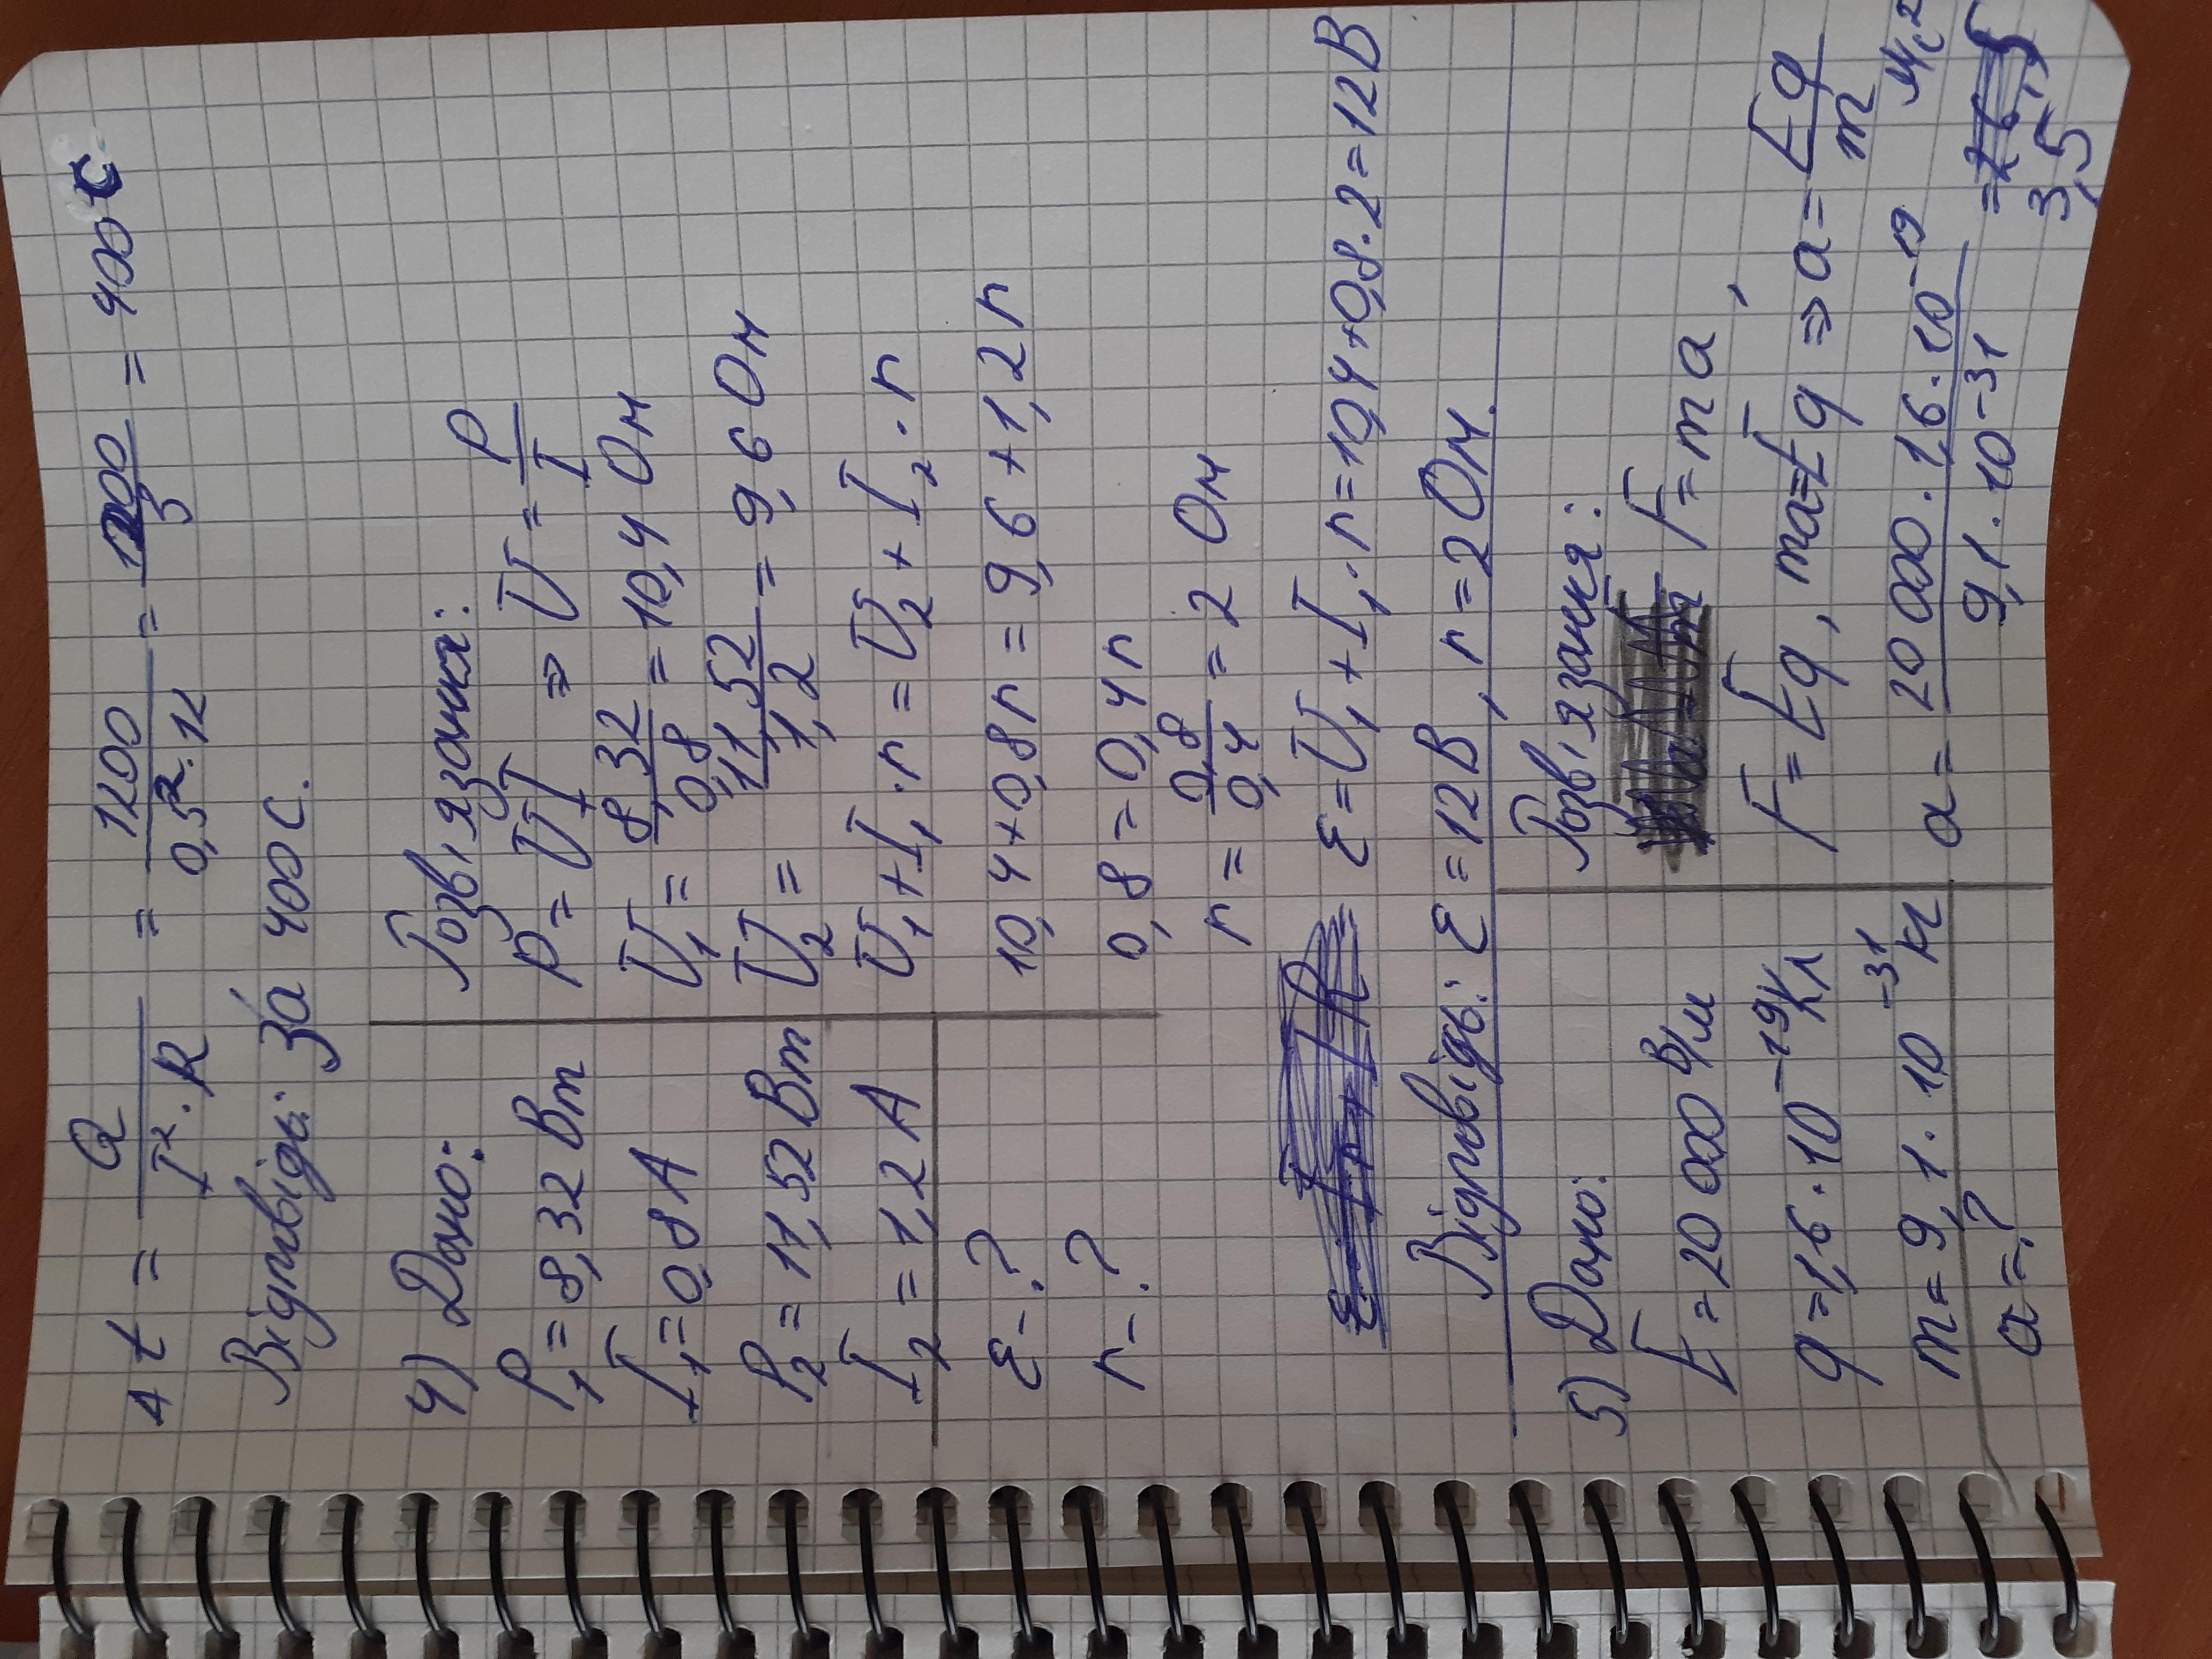 t = Q / I² · R = 1200 / 0,5² · 12 = 1200 / 3 = 400 c
Відповідь: За 400 с.
4) Дано:
P₁ = 8,32 Вт
I₁ = 0,8 А
P₂ = 11,52 Вт
I₂ = 1,2 А
ε - ?
r - ?
Розв'язання:
P = UI ⇒ U = P / I
U₁ = 8,32 / 0,8 = 10,4 Ом
U₂ = 11,52 / 1,2 = 9,6 Ом
U₁ + I₁ · r = U₂ + I₂ · r
10,4 + 0,8r = 9,6 + 1,2r
0,8 = 0,4r
r = 0,8 / 0,4 = 2 Ом
ε = U₁ + I₁ · r = 10,4 + 0,8 · 2 = 12 В
Відповідь: ε = 12 В, r = 2 Ом.
5) Дано:
E = 20 000 В/м
q = 1,6 · 10⁻¹⁹ Кл
m = 9,1 · 10⁻³¹ кг
a = ?
Розв'язання:
F = ma,
F = Eq, ma = Eq ⇒ a = Eq / m
a = 20 000 · 1,6 · 10⁻¹⁹ / 9,1 · 10⁻³¹ = 3,5 м/с²